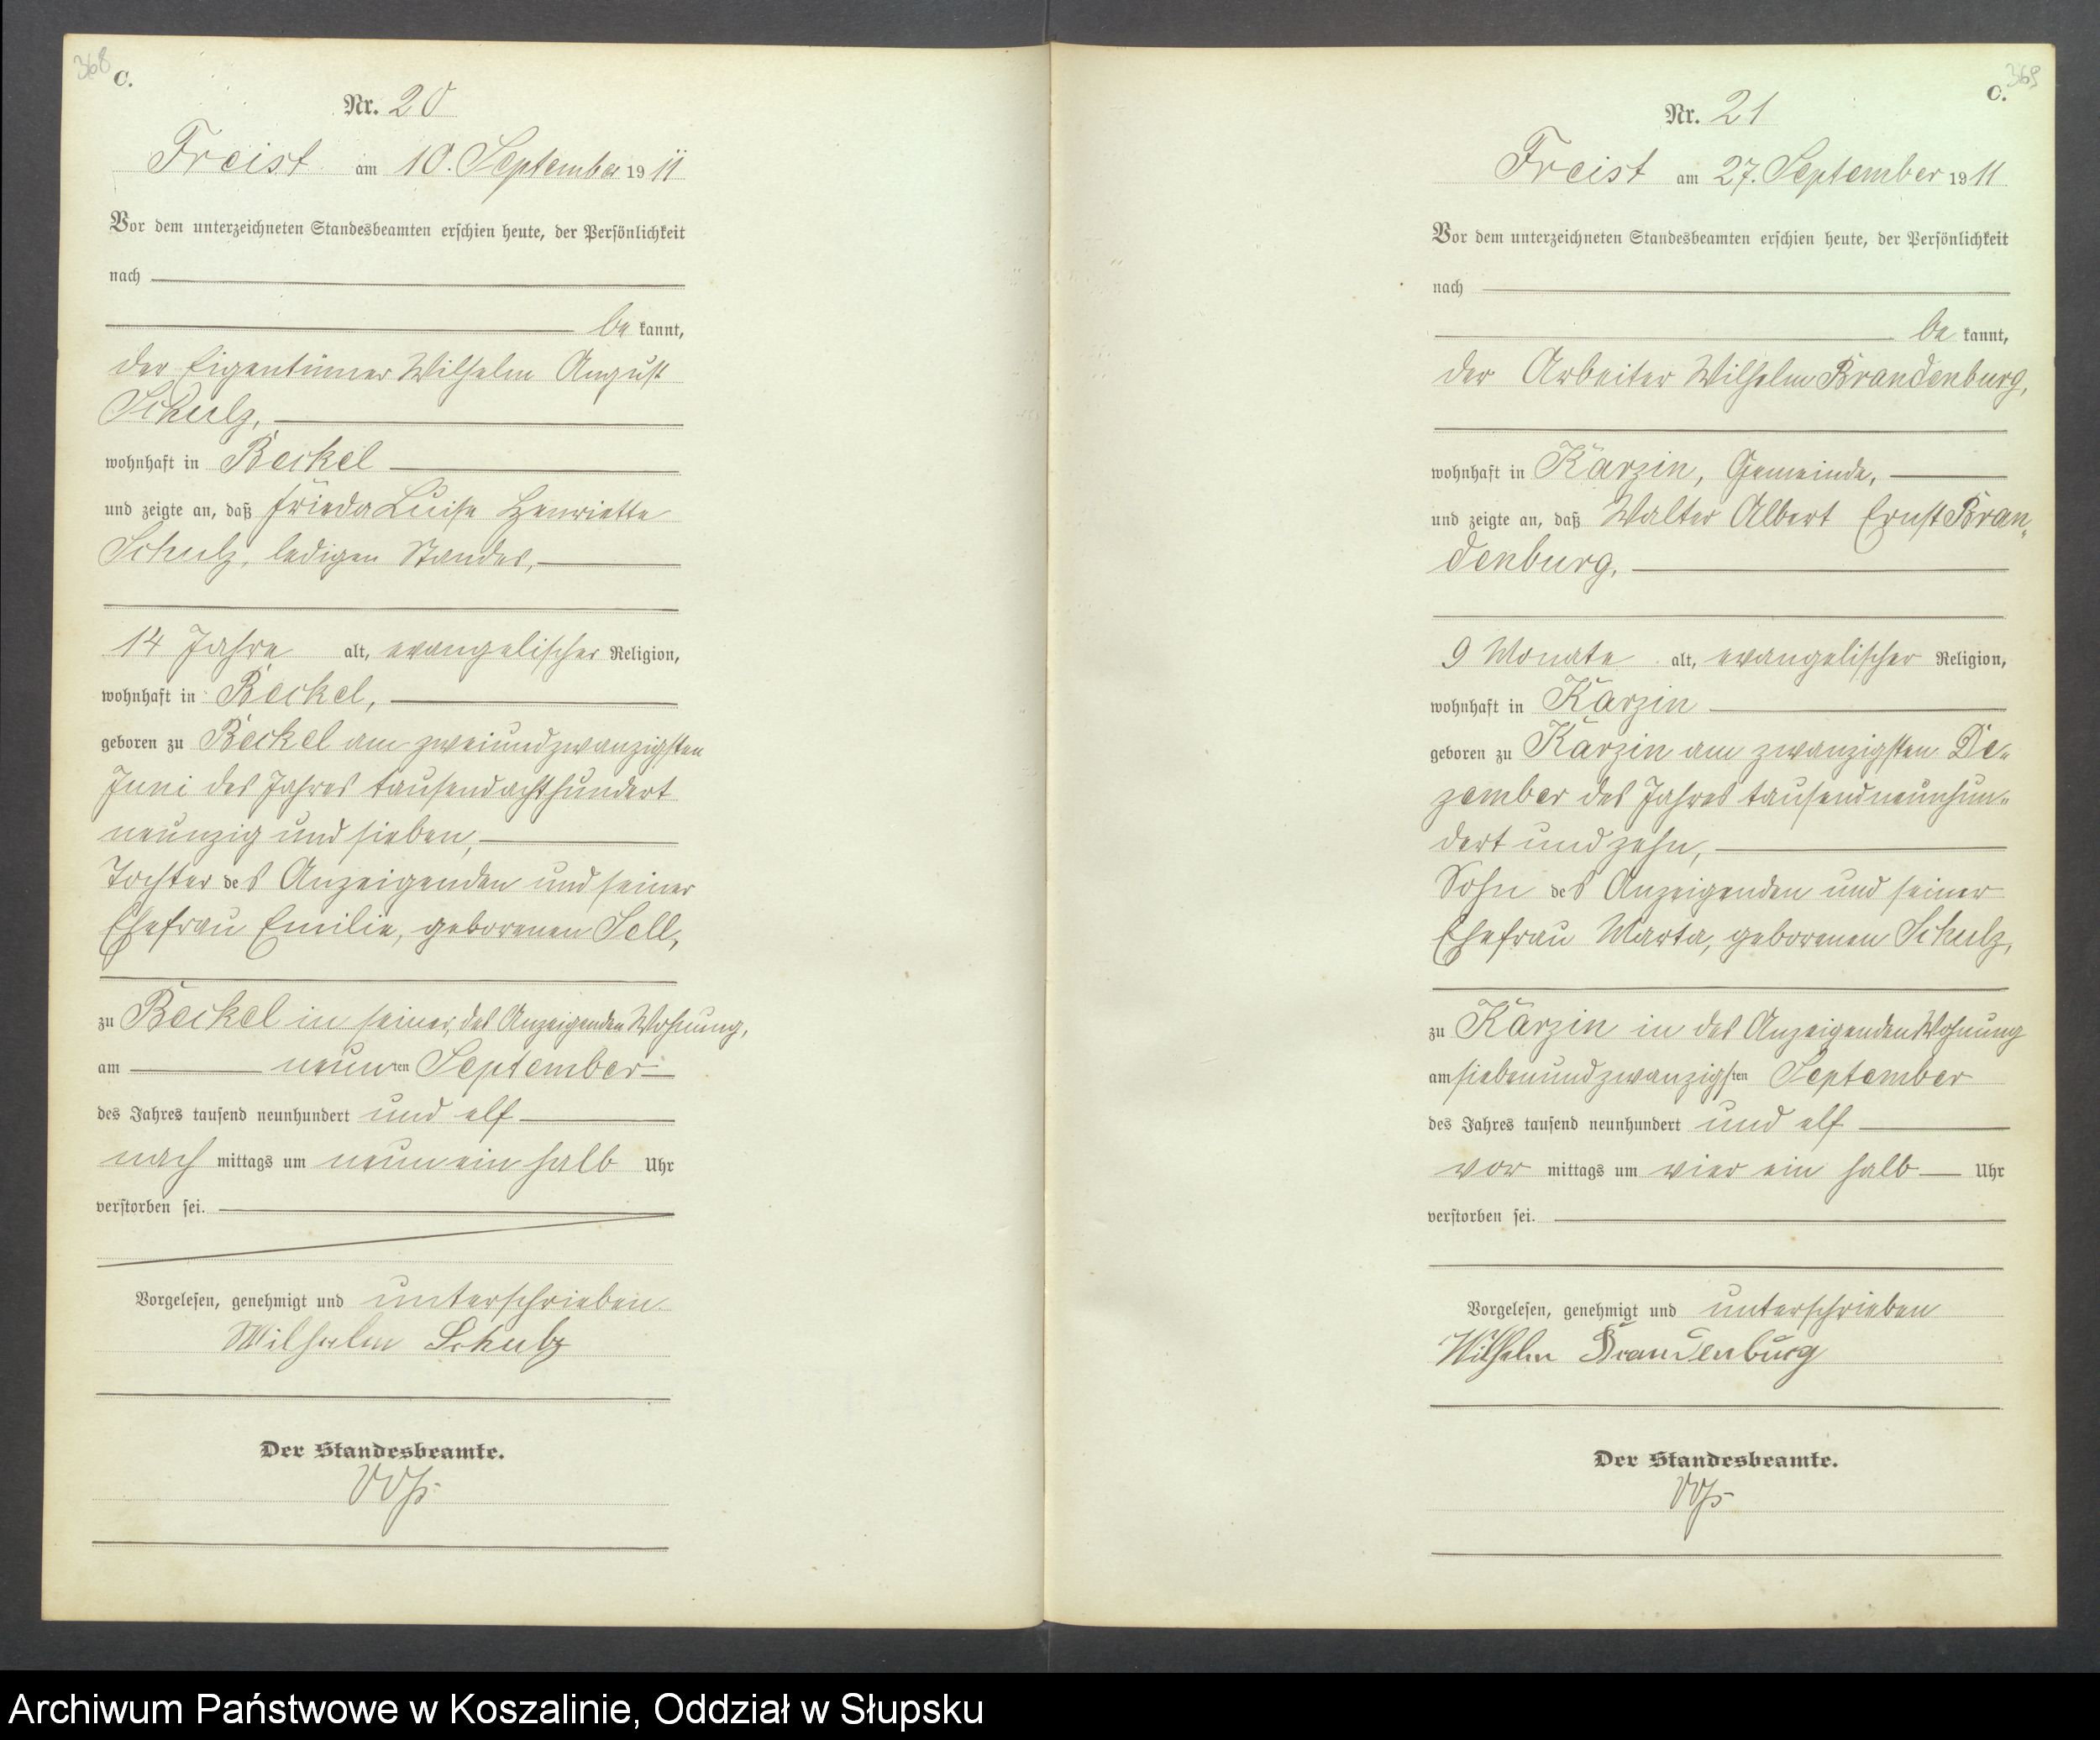 368
C.
Nr. 20
Freist am 10. September 1911
Vor dem unterzeichneten Standesbeamten erschien heute, der Persönlichkeit
nach
be kannt,
der Eigentümer Wilhelm August
Schulz,
wohnhaft in Beckel
und zeigte an, daß Frieda Luise Henriette
Schulz, ledigen Standes,
14 Jahre alt, evangelischer Religion,
wohnhaft in Beckel,
geboren zu Beckel am zweiundzwanzigsten
Juni des Jahres tausendachthundert
neunzig und sieben,
Tochter des Anzeigenden und seiner
Ehefrau Emilie, geborenen Sell,
zu Beckel in seiner, des Anzeigenden Wohnung,
am neunten September
des Jahres tausend neunhundert und elf
nach mittags um neun ein halb Uhr
verstorben sei.
Vorgelesen, genehmigt und unterschrieben
Wilhelm Schulz
Der Standesbeamte.
369
C.
Nr. 21
Freist am 27. September 1911
Vor dem unterzeichneten Standesbeamten erschien heute, der Persönlichkeit
nach
be kannt,
der Arbeiter Wilhelm Brandenburg,
wohnhaft in Karzin, Gemeinde,
und zeigte an, daß Walter Albert Ernst Bran„
denburg,
9 Monate alt, evangelischer Religion,
wohnhaft in Karzin
geboren zu Karzin am zwanzigsten De„
zember des Jahres tausendneunhun„
dert und zehn,
Sohn des Anzeigenden und seiner
Ehefrau Marta, geborenen Schulz,
zu Karzin in des Anzeigenden Wohnung
am siebenundzwanzigsten September
des Jahres tausend neunhundert und elf
vor mittags um vier ein halb Uhr
verstorben sei.
Vorgelesen, genehmigt und unterschrieben
Wilhelm Brandenburg
Der Standesbeamte.
Archiwum Państwowe w Koszalinie, Oddział w Słupsku